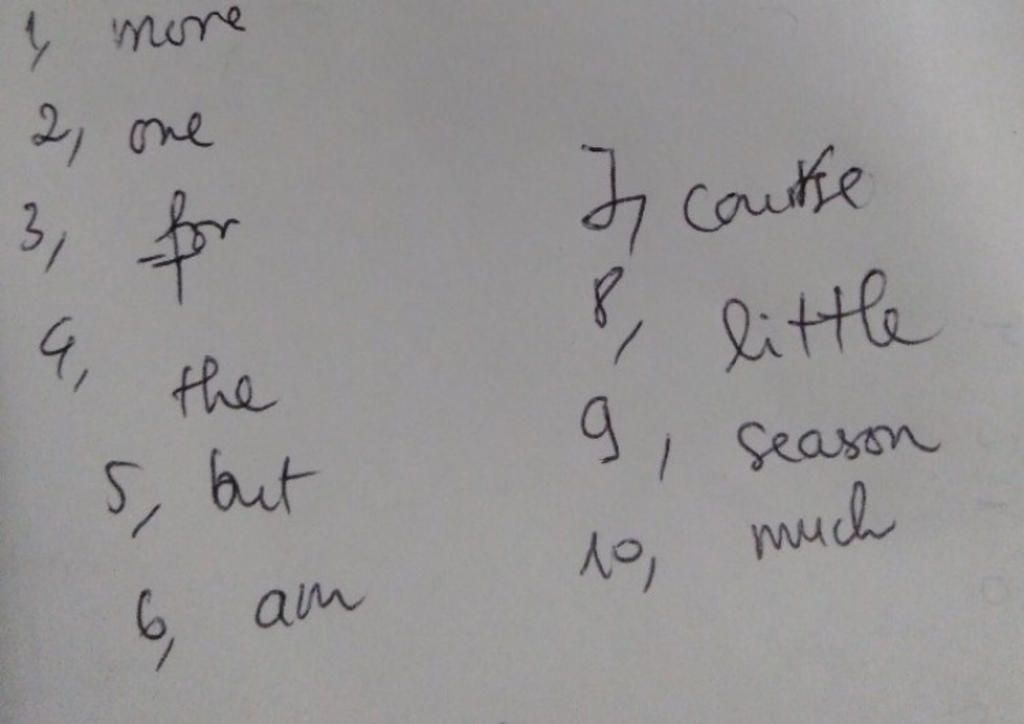 1, more
2, one
3, for
4, the
5, but
6, am
7, course
8, little
9, season
10, much